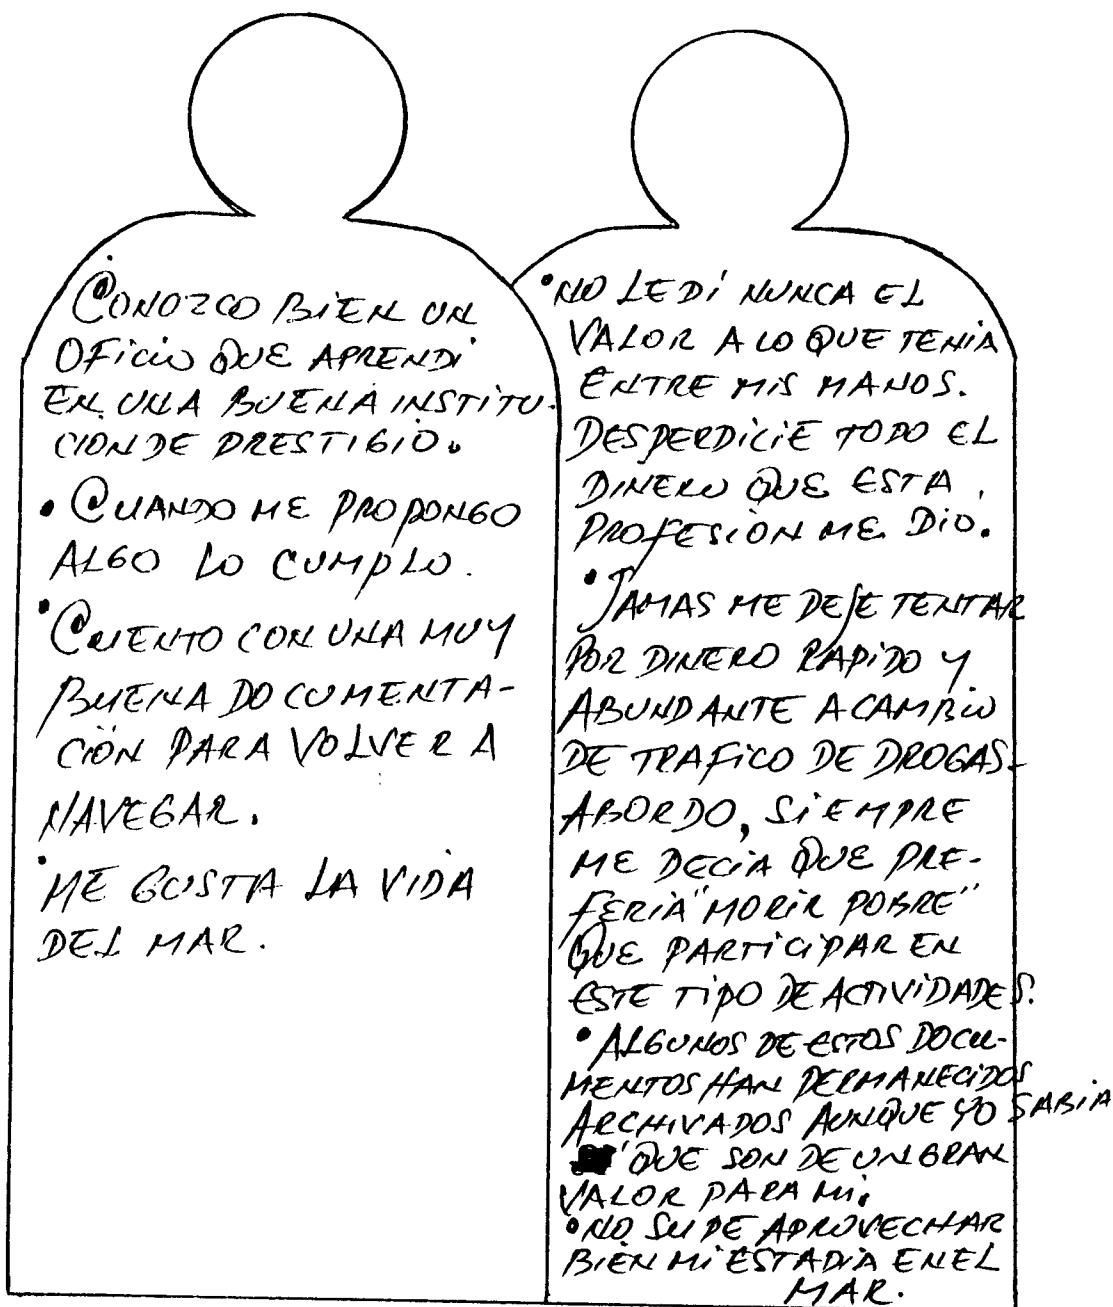 • CONOZCO BIEN UN
OFICIO QUE APRENDI
EN UNA BUENA INSTITU-
CION DE PRESTIGIO.
• CUANDO ME PROPONGO
ALGO LO CUMPLO.
• CUENTO CON UNA MUY
BUENA DOCUMENTA-
CIÓN PARA VOLVER A
NAVEGAR.
• ME GUSTA LA VIDA
DEL MAR.
• NO LE DI NUNCA EL
VALOR A LO QUE TENIA
ENTRE MIS MANOS.
DESPERDICIE TODO EL
DINERO QUE ESTA
PROFESIÓN ME DIO.
• JAMAS ME DEJE TENTAR
POR DINERO RAPIDO Y
ABUNDANTE A CAMBIO
DE TRAFICO DE DROGAS
ABORDO, SIEMPRE
ME DECIA QUE PRE-
FERIA "MORIR POBRE"
QUE PARTICIPAR EN
ESTE TIPO DE ACTIVIDADES.
• ALGUNOS DE ESTOS DOCU-
MENTOS HAN PERMANECIDOS
ARCHIVADOS AUNQUE YO SABIA
QUE SON DE UN GRAN
VALOR PARA MI.
• NO SUPE APROVECHAR
BIEN MI ESTADIA EN EL
MAR.